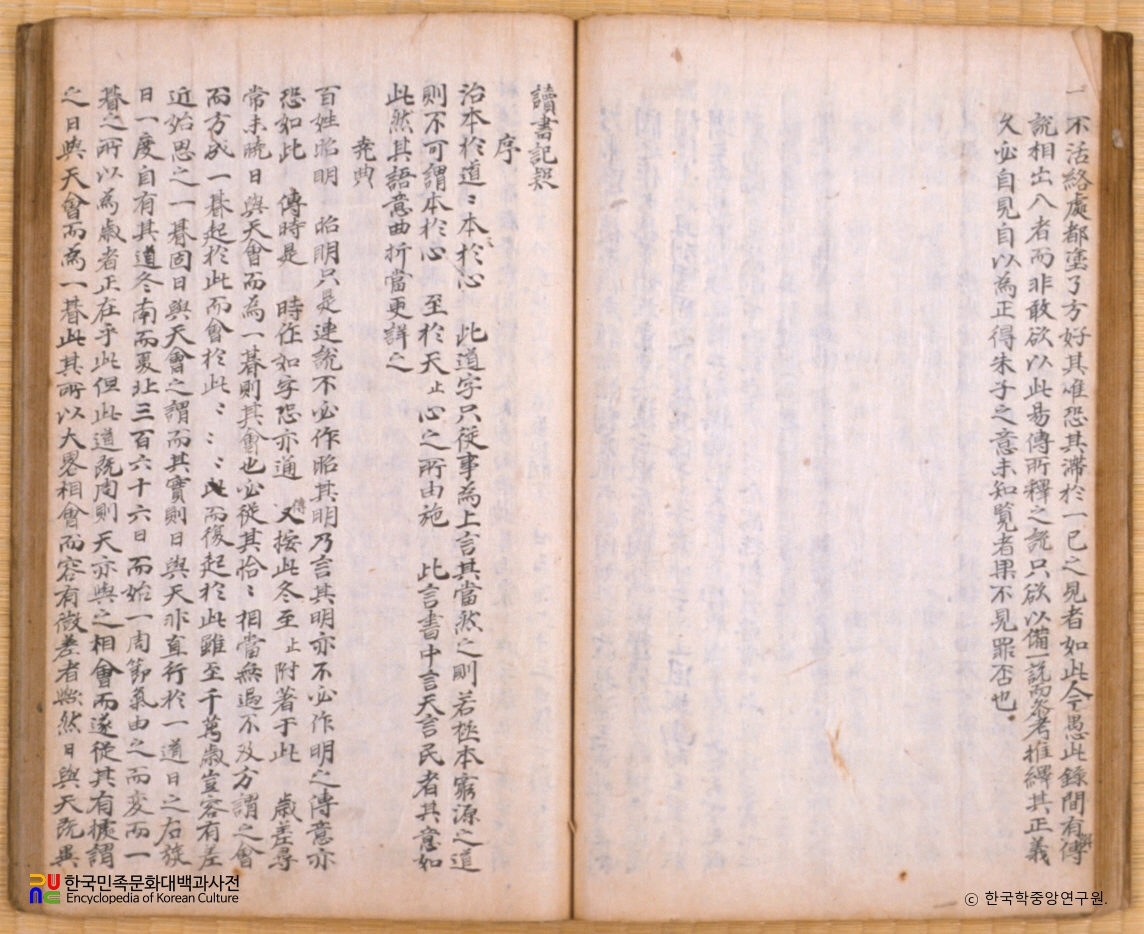 一
不活絡處都塗了方好其唯恐其滯於一己之見者如此今愚此錄間有傳
說相出入者而非敢欲以此易傳所釋之說只欲以備一說而參考推繹其正義
久必自見自以為正得朱子之意未知覽者果不見罪否也
讀書記疑
序
治本於道〻本於心 此道字只從事為上言其當然之則若極本窮源之道
則不可謂本於心 至於天止心之所由施 此言書中言天言民者其意如
此然其語意曲折當更詳之
堯典
百姓昭明 昭明只是連說不必作昭其明乃言其明亦不必作明之傳意亦
恐如此 傳時是 時作如字恐亦通 傳又按此冬至止附著于此 歲差尋
常未曉日與天會而為一朞則其會也必從其恰〻相當無過不及方謂之會
而方成一朞起於此而會於此〻〻〻此而復起於此雖至千萬歲豈容有差
近始思之一朞固日與天會之謂而其實則日與天非直行於一道日之右旋
日一度自有其道冬南而夏北三百六十六日而始一周節氣由之而変而一
朞之所以為歲者正在乎此但此道旣周則天亦與之相會而遂從其有據謂
之日與天會而為一朞此其所以大畧相會而容有微差者歟然日與天旣異
한국민족문화대백과사전
Encyclopedia of Korean Culture
ⓒ 한국학중앙연구원.